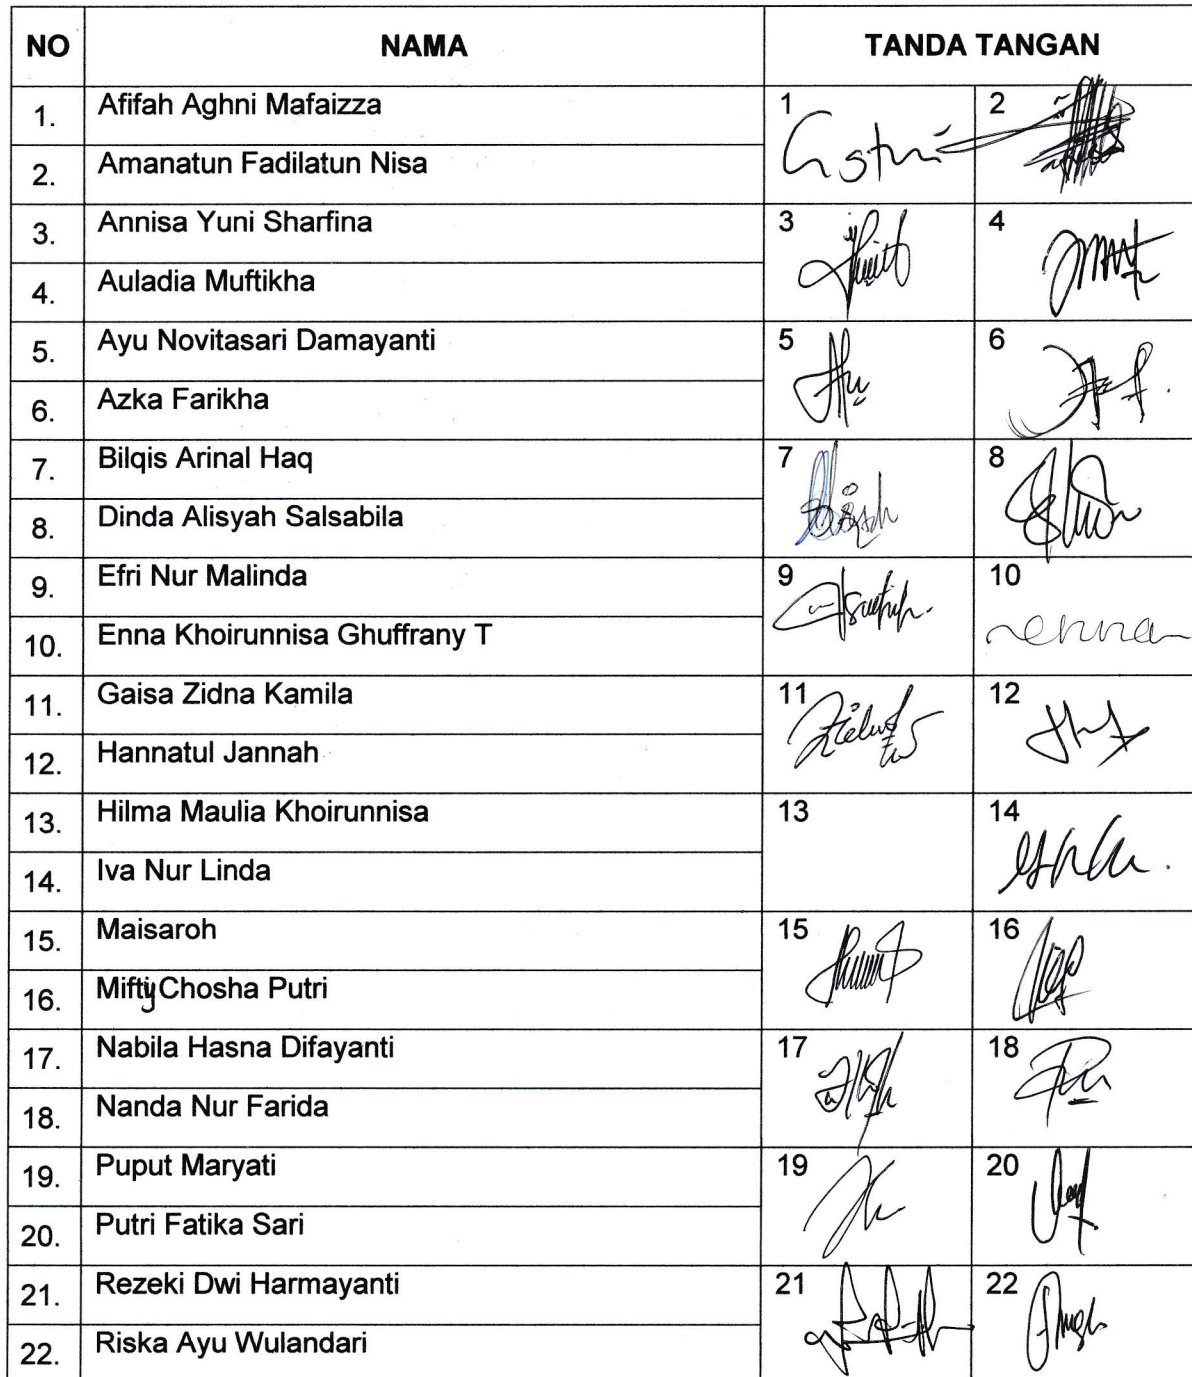 NO NAMA TANDA TANGAN
1. Afifah Aghni Mafaizza 1 2
2. Amanatun Fadilatun Nisa
3. Annisa Yuni Sharfina 3 4
4. Auladia Muftikha
5. Ayu Novitasari Damayanti 5 6
6. Azka Farikha
7. Bilqis Arinal Haq 7 8
8. Dinda Alisyah Salsabila
9. Efri Nur Malinda 9 10
10. Enna Khoirunnisa Ghuffrany T enna
11. Gaisa Zidna Kamila 11 12
12. Hannatul Jannah
13. Hilma Maulia Khoirunnisa 13 14
14. Iva Nur Linda
15. Maisaroh 15 16
16. Mifty Chosha Putri
17. Nabila Hasna Difayanti 17 18
18. Nanda Nur Farida
19. Puput Maryati 19 20
20. Putri Fatika Sari
21. Rezeki Dwi Harmayanti 21 22
22. Riska Ayu Wulandari